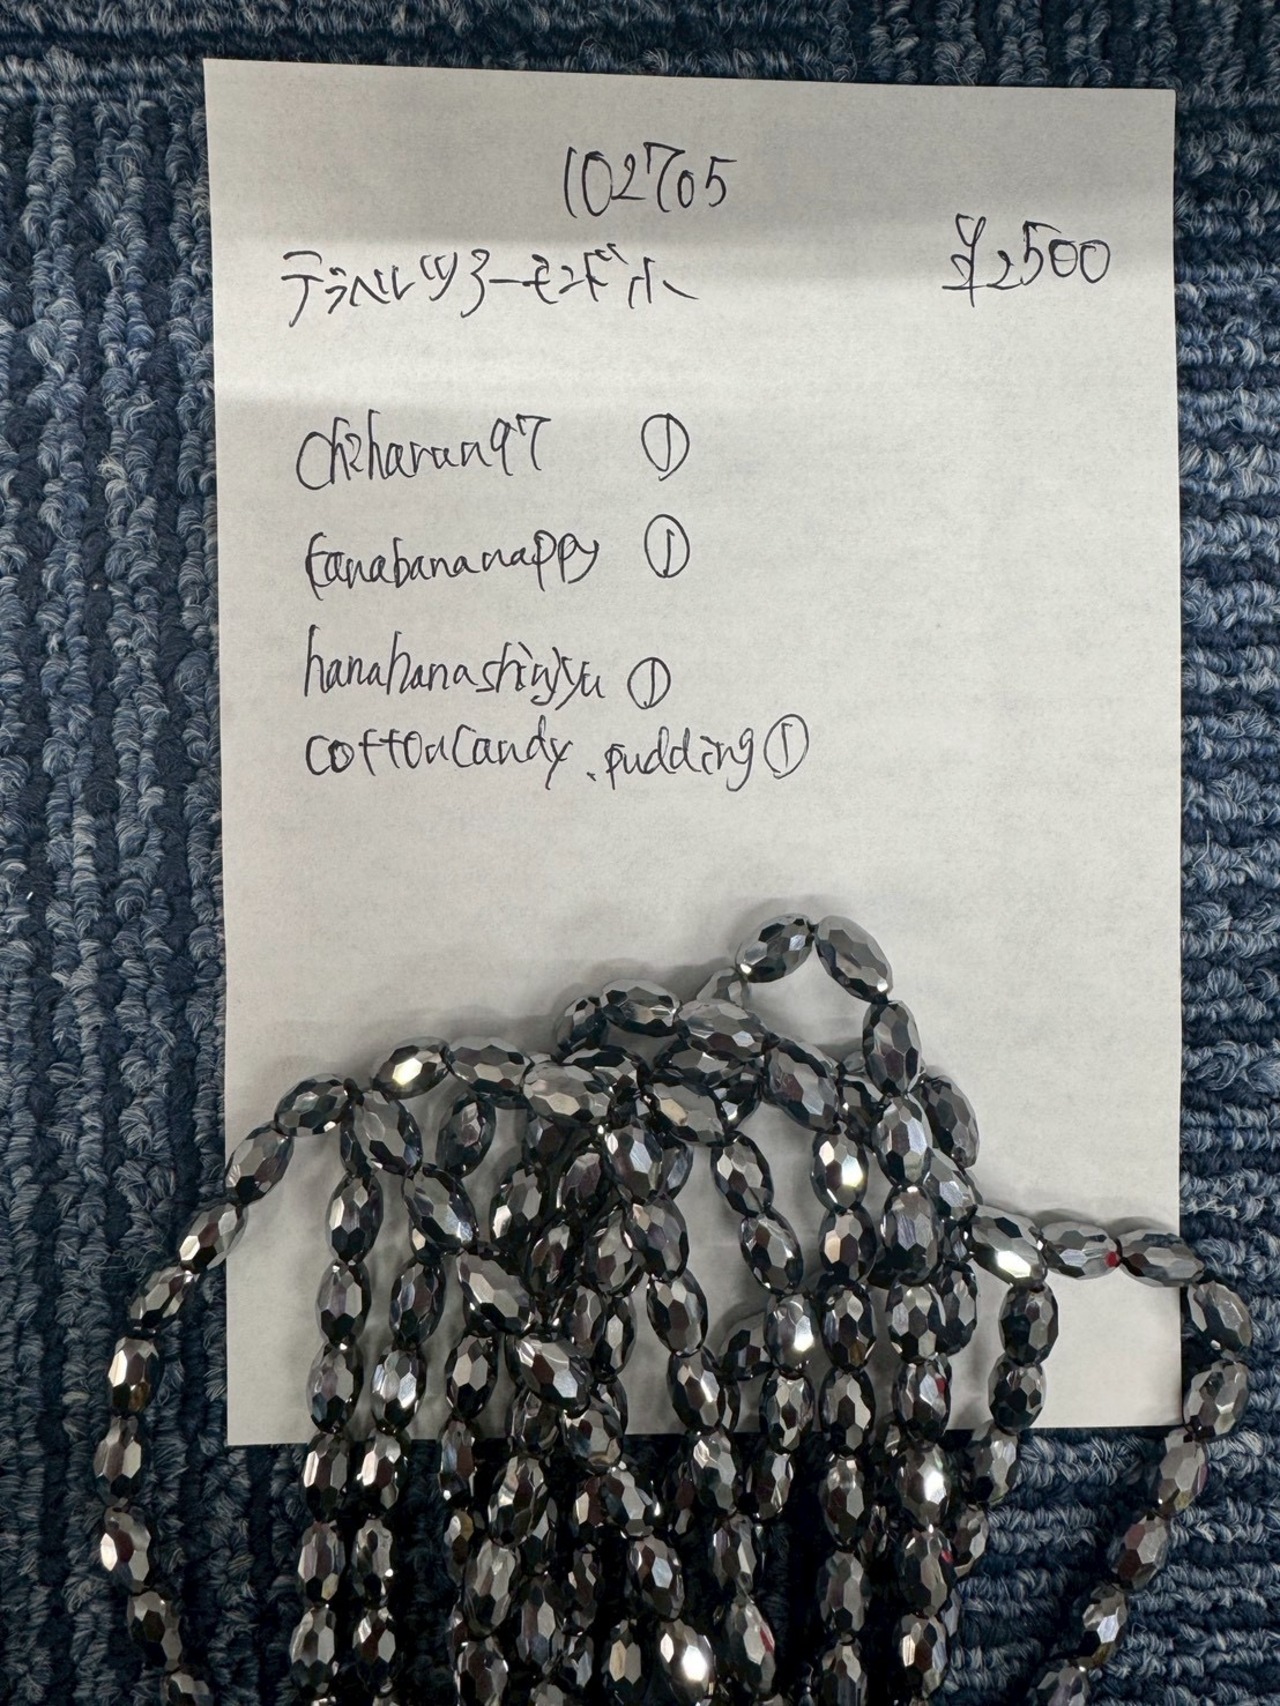 102705
テラヘルツアーモンド小
¥2500
chiharun97 ①
tanabananappy ①
hanahanashinjyu ①
cottoncandy.pudding ①